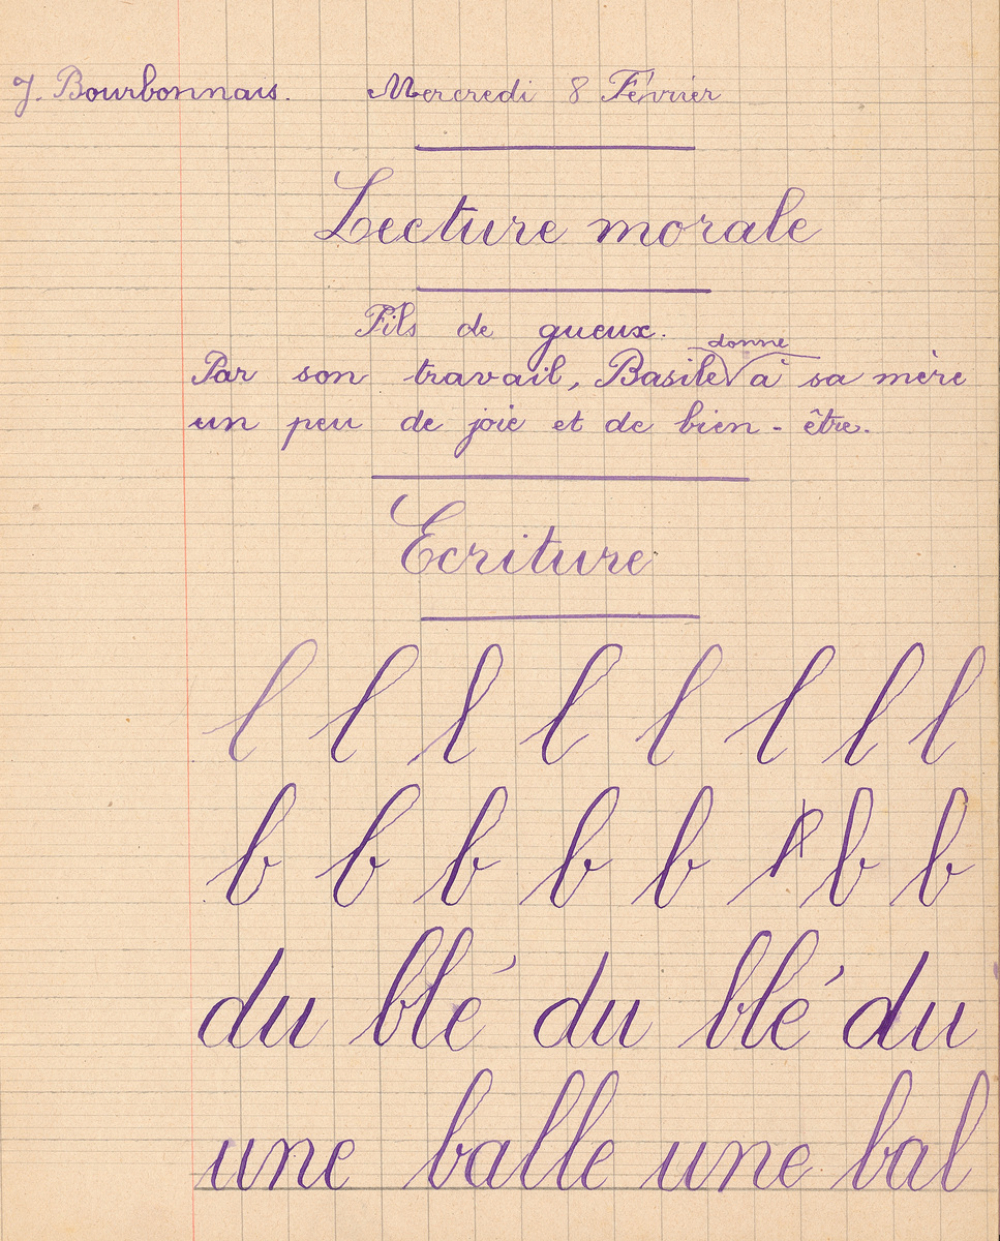 J. Bourbonnais. Mercredi 8 Février
Lecture morale
Fils de gueux.
donne
Par son travail, Basile à sa mère
un peu de joie et de bien-être.
Ecriture
l l l l l l l l
b b b b b b b
du blé du blé du
une balle une bal